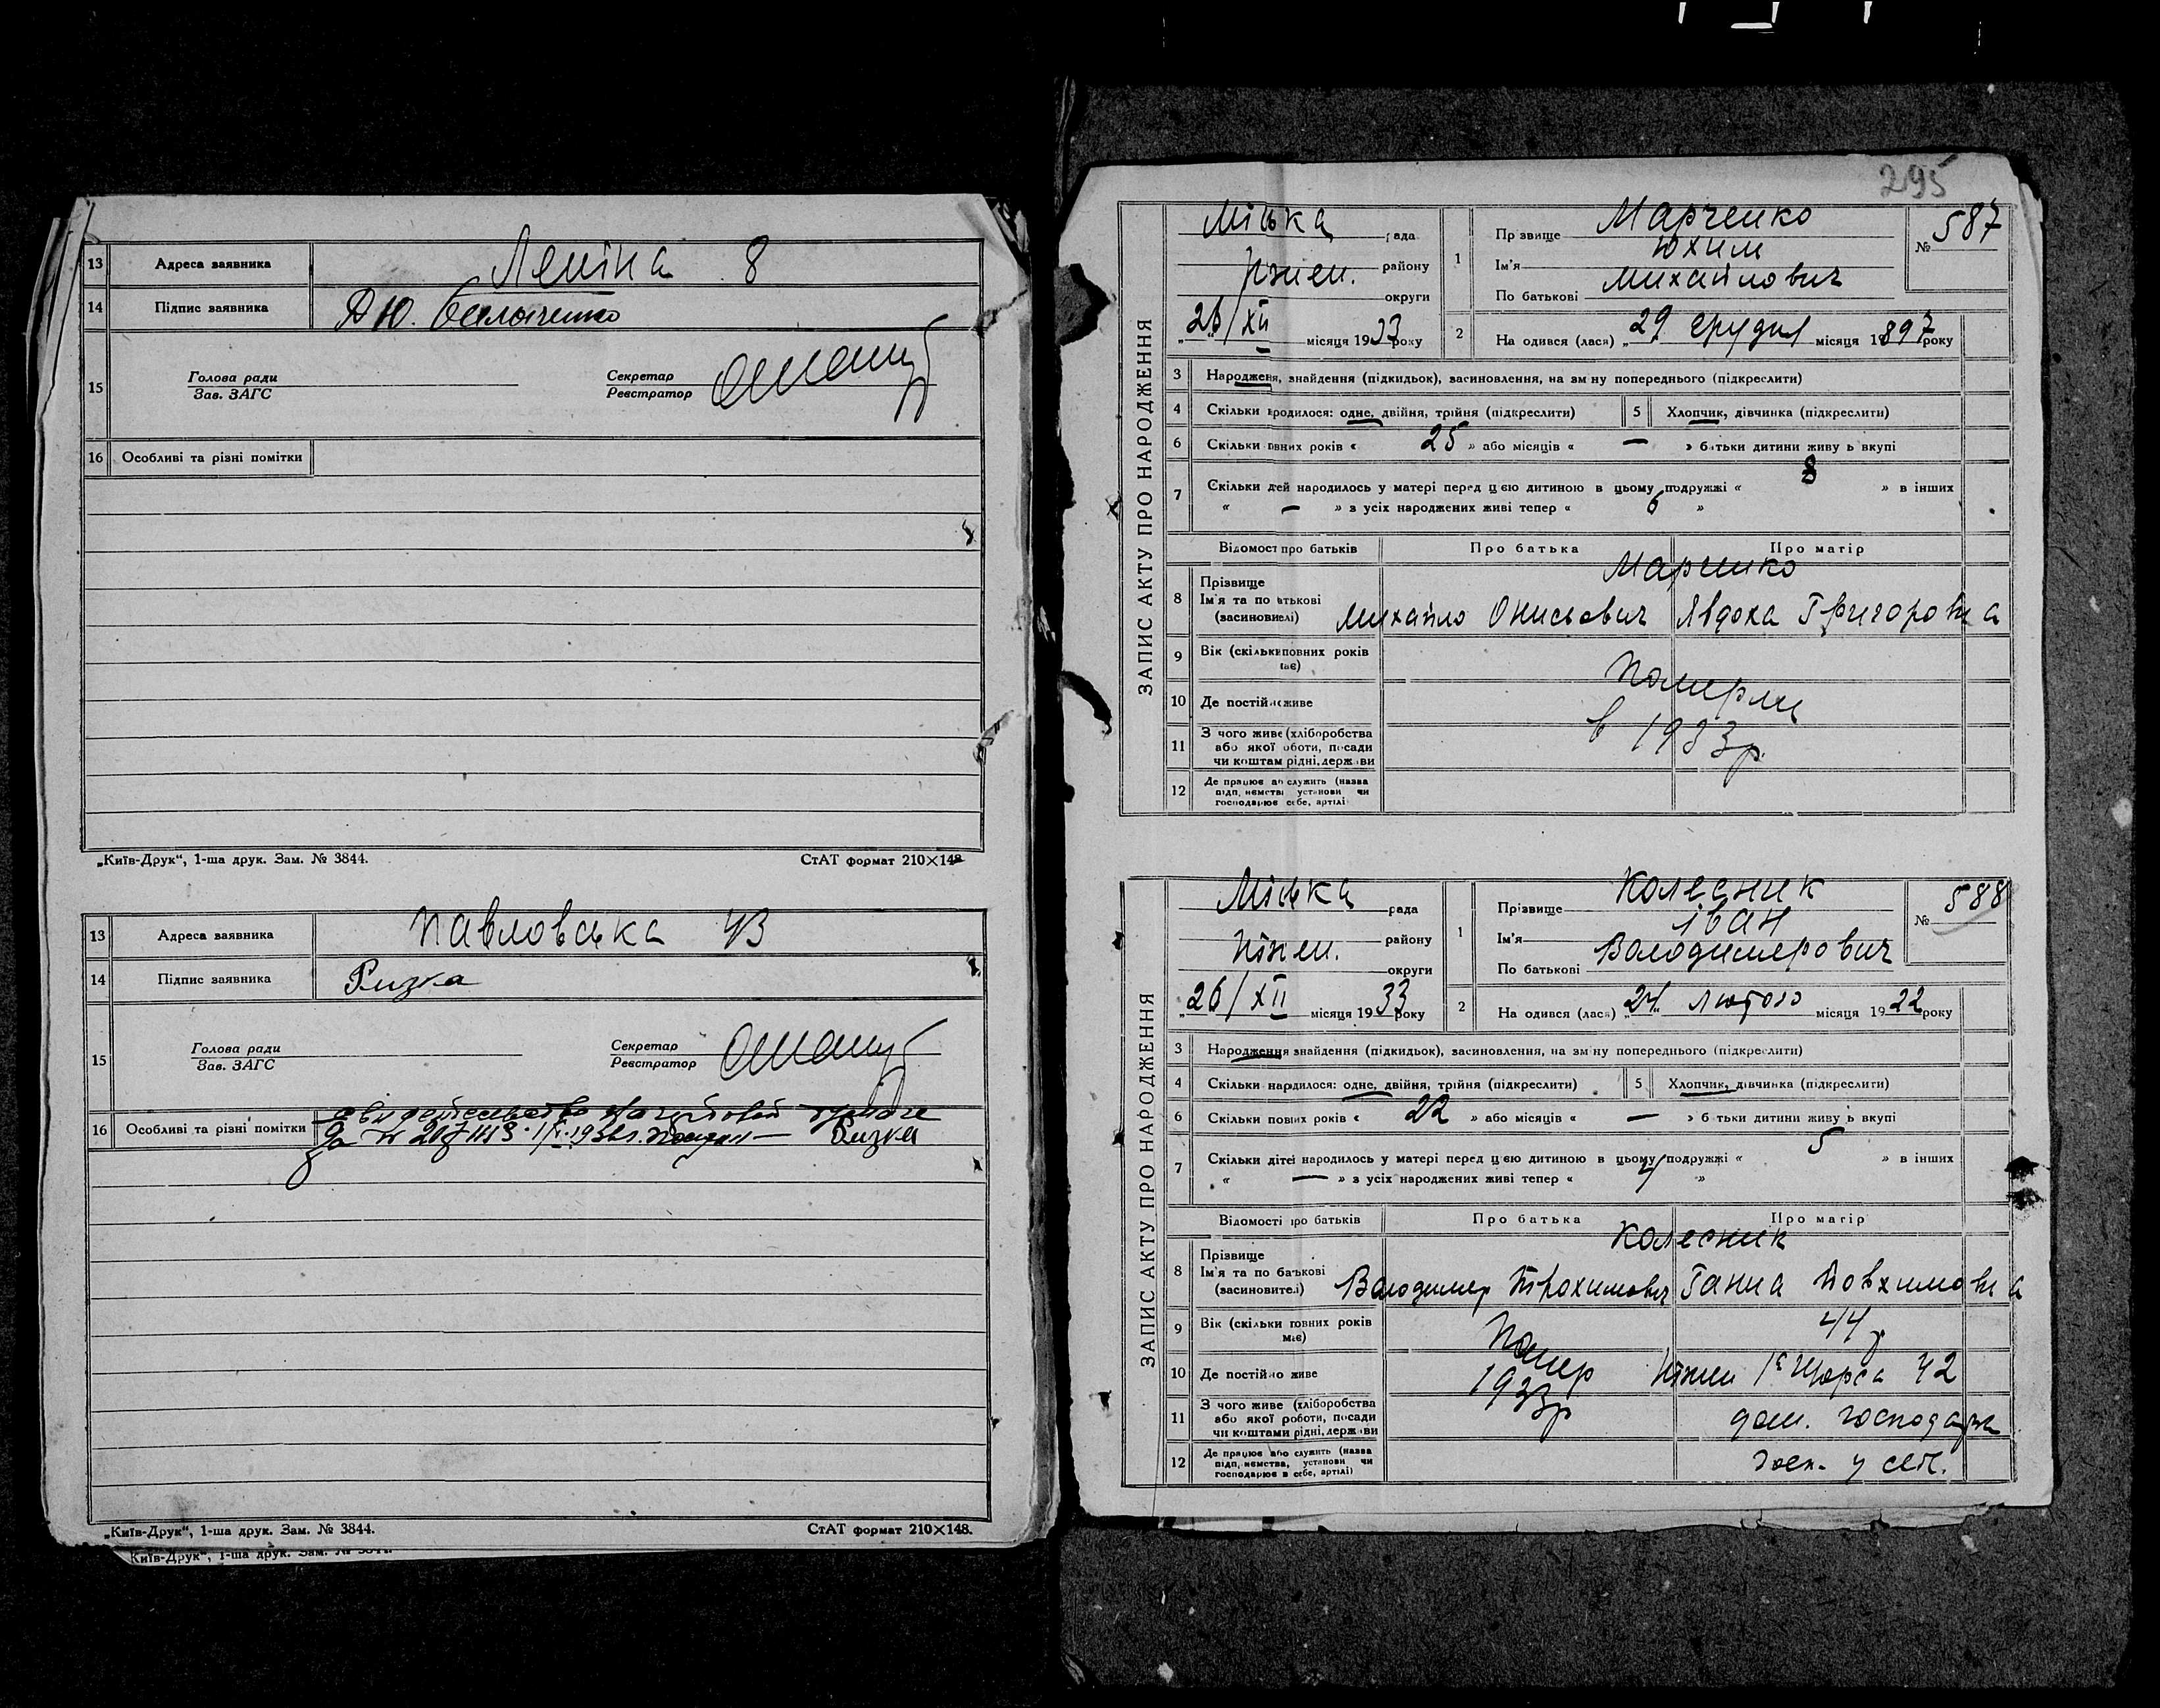 13 Адреса заявника Леніна 8
14 Підпис заявника
15 Голова ради Секретар
Зав. ЗАГС Реєстратор
16 Особливі та різні помітки
„Київ-Друк“, 1-ша друк. Зам. № 3844. СтАТ формат 210×148
13 Адреса заявника Павловська 43
14 Підпис заявника Ризка
15 Голова ради Секретар
Зав. ЗАГС Реєстратор
16 Особливі та різні помітки
Ризка
„Київ-Друк“, 1-ша друк. Зам. № 3844. СтАТ формат 210×148.
295
ЗАПИС АКТУ ПРО НАРОДЖЕННЯ
Міська рада
Ніжен. району
округи
26/XII місяця 1933 року
1 Прізвище Марченко
Ім'я Юхим
По батькові Михайлович
№ 587
2 На одився (лася) „29 грудня місяця 1897 року
3 Народження, знайдення (підкидьок), засиновлення, на зм ну попереднього (підкреслити)
4 Скільки народилося: одне, двійня, трійня (підкреслити) 5 Хлопчик, дівчинка (підкреслити)
6 Скільки повних років « 25 » або місяців « — » батьки дитини живуть вкупі
7 Скільки дітей народилось у матері перед цією дитиною в цьому подружжі « 8 » в інших
« — » з усіх народжених живі тепер « 6 »
Відомості про батьків Про батька Про матір
Марченко
8 Прізвище
Ім'я та по батькові
(засиновителі) Михайло Онисьович Явдоха Григоровна
9 Вік (скільки повних років має)
Померли
10 Де постійно живе
в 1933р.
11 З чого живе (хліборобства
або якої роботи, посади
чи коштами рідні, держави
12 Де працює або служить (назва
підприємства, установи чи
господарює в себе, артілі)
ЗАПИС АКТУ ПРО НАРОДЖЕННЯ
Міська рада
Ніжен. району
округи
26/XII місяця 1933 року
1 Прізвище Колесник
Ім'я Іван
По батькові Володимерович
№ 588
2 На одився (лася) „24 лютого місяця 1922 року
3 Народження знайдення (підкидьок), засиновлення, на зм ну попереднього (підкреслити)
4 Скільки народилося: одне, двійня, трійня (підкреслити) 5 Хлопчик, дівчинка (підкреслити)
6 Скільки повних років « 22 » або місяців « — » батьки дитини живуть вкупі
7 Скільки дітей народилось у матері перед цією дитиною в цьому подружжі « 5 » в інших
« — » з усіх народжених живі тепер « 4 »
Відомості про батьків Про батька Про матір
Колесник
8 Прізвище
Ім'я та по батькові
(засиновителі) Володимер Трохимович Ганна Повхимовна
9 Вік (скільки повних років має) Помер 44 р
10 Де постійно живе 1933р Ніжен Щорса 42
11 З чого живе (хліборобства
або якої роботи, посади
чи коштами рідні, держави дом. господарка
12 Де працює або служить (назва
підприємства, установи чи
господарює в себе, артілі) госп. у себе.